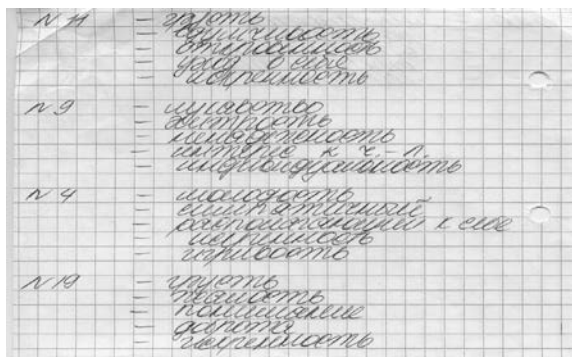 N 11 — грусть
— вдумчивость
— открытость
— уход в себя
— искренность
N 9 — лукавство
— хитрость
— ненадежность
— интерес к ч.-л.
— индивидуальность
N 4 — молодость
— симпатичный
— располагающий к себе
— искренность
— игривость
N 19 — грусть
— тяжесть
— понимание
— доброта
— уверенность